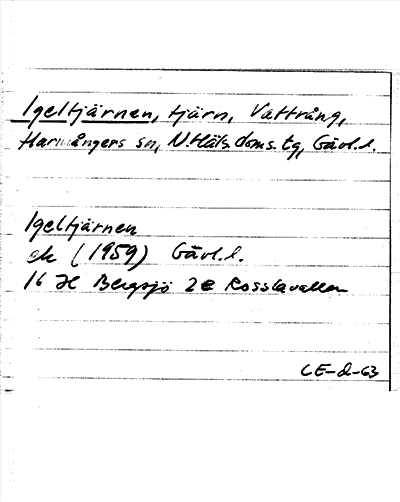 Igeltjärnen, tjärn, Vattrång,
Harmångers sn, N. Häls. doms. tg, Gävl. l.
Igeltjärnen
ek (1959) Gävl. l.
16 H Bergsjö 2 e Rosslavallen
CE-d-63